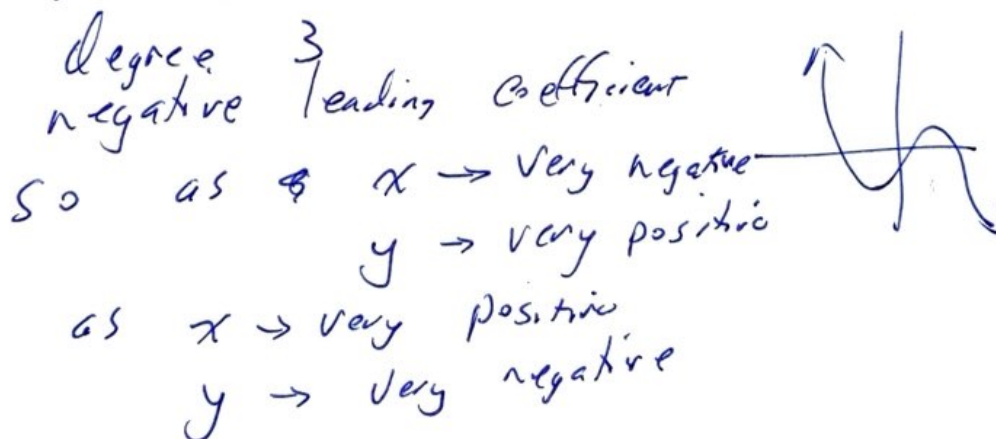 degree 3
negative leading coefficient
so as x → very negative
y → very positive
as x → very positive
y → very negative